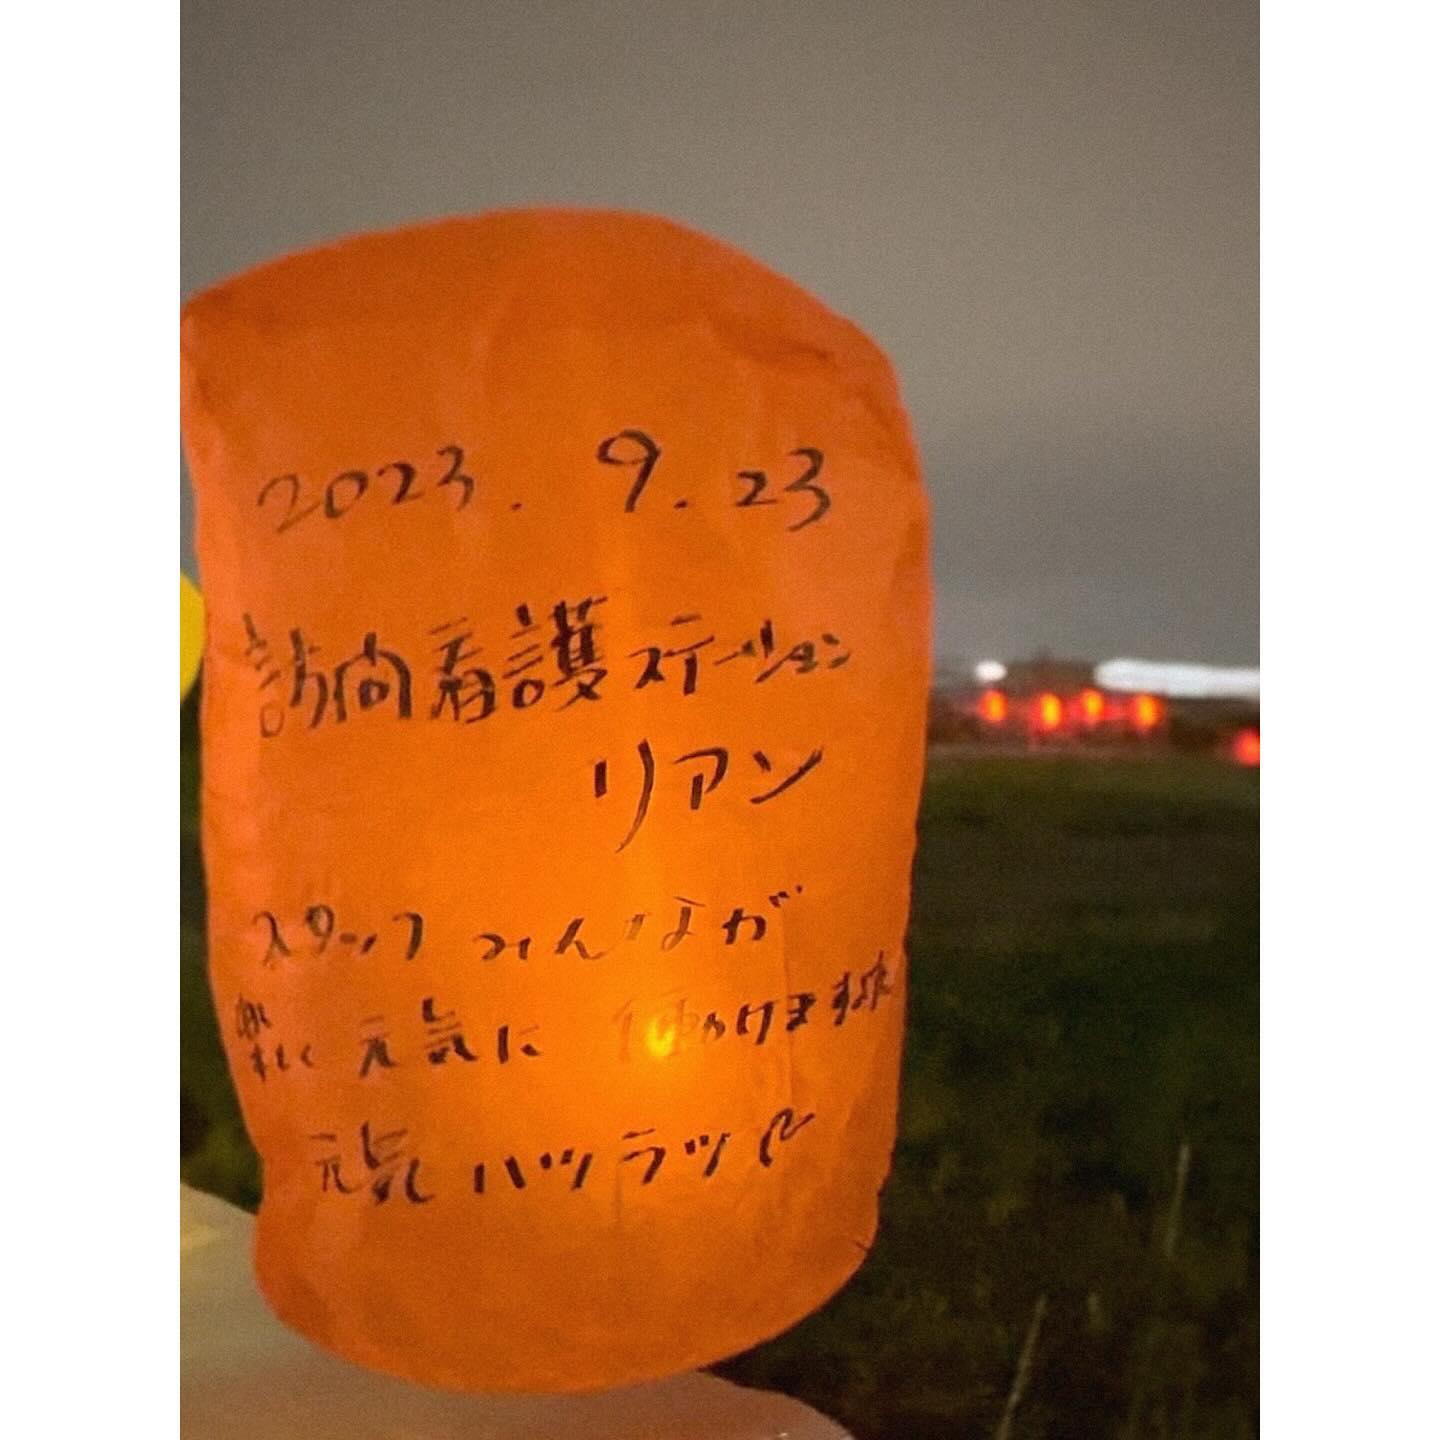 2023. 9. 23
訪問看護ステーション
リアン
スタッフみんなが
楽しく 元気に 働けますように
元気ハツラツ